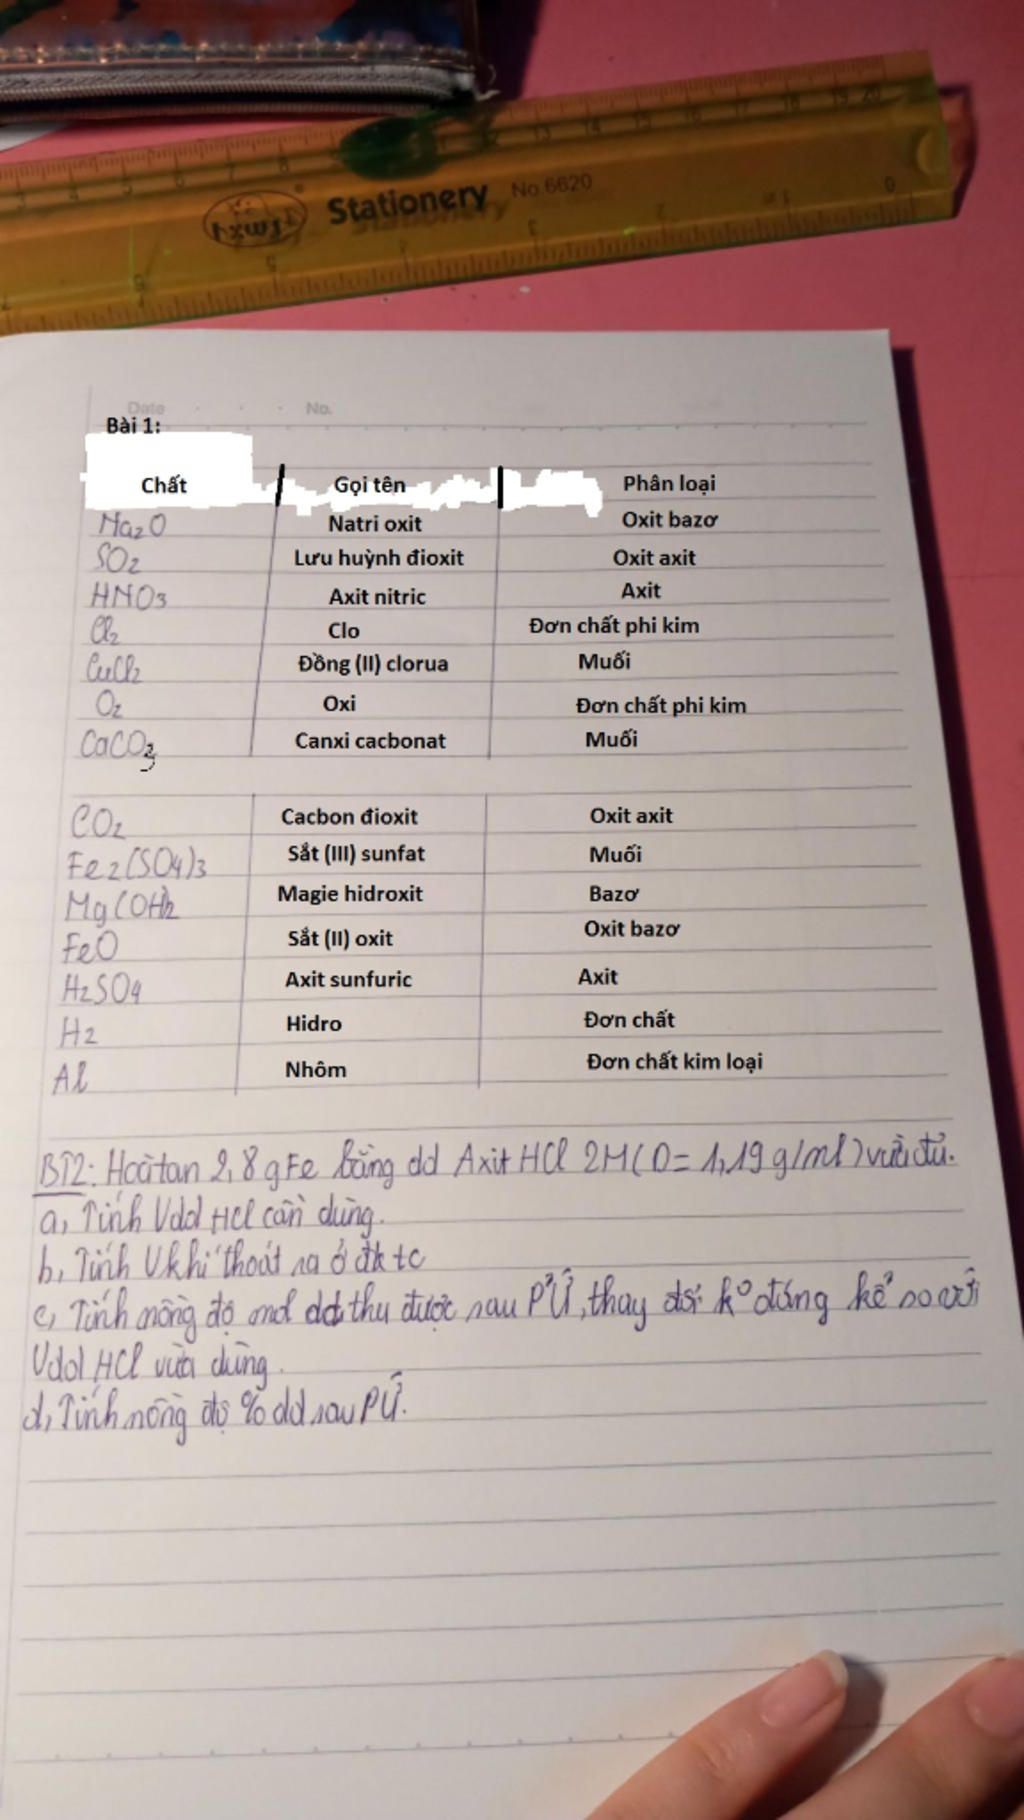 Stationery No 6620
Date No.
Bài 1:
Chất Gọi tên Phân loại
Na2O Natri oxit Oxit bazơ
SO2 Lưu huỳnh đioxit Oxit axit
HNO3 Axit nitric Axit
Cl2 Clo Đơn chất phi kim
CuCl2 Đồng (II) clorua Muối
O2 Oxi Đơn chất phi kim
CaCO3 Canxi cacbonat Muối
CO2 Cacbon đioxit Oxit axit
Fe2(SO4)3 Sắt (III) sunfat Muối
Mg(OH)2 Magie hidroxit Bazơ
FeO Sắt (II) oxit Oxit bazơ
H2SO4 Axit sunfuric Axit
H2 Hidro Đơn chất
Al Nhôm Đơn chất kim loại
BT2: Hoà tan 2,8 g Fe bằng dd Axit HCl 2M (D = 1,19 g/ml) vừa đủ.
a, Tính Vdd HCl cần dùng.
b, Tính V khí thoát ra ở đktc
c, Tính nồng độ mol dd thu được sau PỨ, thay đổi k° đáng kể so với
Vdd HCl vừa dùng.
d, Tính nồng độ % dd sau PỨ.